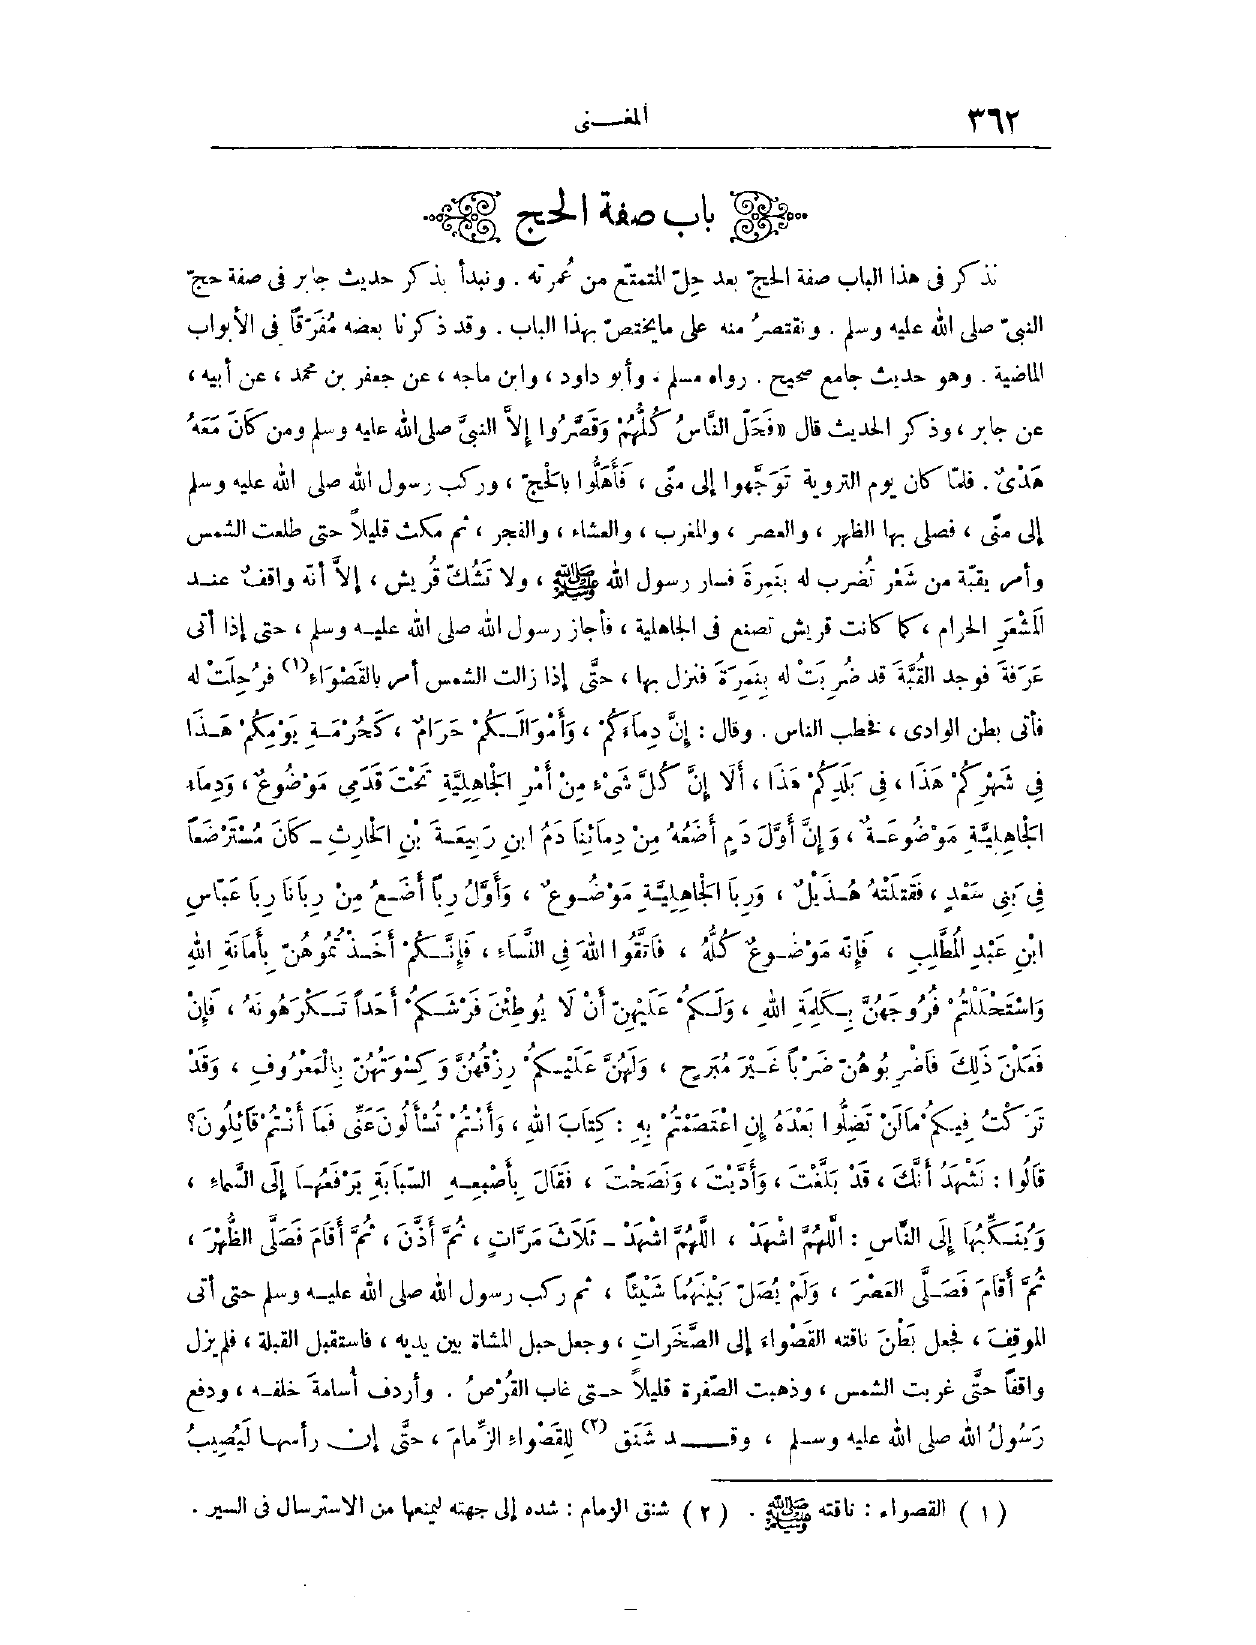 ٣٦٢
المغـــنى
باب صفة الحج
نذكر فى هذا الباب صفة الحجّ بعد حِلّ المتمتّع من عُمرته . ونبدأ بذكر حديث جابر فى صفة حجّ
النبىّ صلى الله عليه وسلم . ونقتصرُ منه على مايختصّ بهذا الباب . وقد ذكرنا بعضه مُفَرّقاً فى الأبواب
الماضية . وهو حديث جامع صحيح . رواه مسلم ، وأبو داود ، وابن ماجه ، عن جعفر بن محمد ، عن أبيه ،
عن جابر ، وذكر الحديث قال «فَحَلّ النَّاسُ كُلُّهُمْ وَقَصَّرُوا إلاَّ النبىَّ صلى الله عليه وسلم ومن كَانَ مَعَهُ
هَدْىٌ . فلمّا كان يوم التروية تَوَجَّهوا إلى منًى ، فَأَهَلُّوا بالحَجّ ، وركب رسول الله صلى الله عليه وسلم
إلى منًى ، فصلى بها الظهر ، والعصر ، والمغرب ، والعشاء ، والفجر ، ثم مكث قليلاً حتى طلعت الشمس
وأمر بقبّة من شَعْر تُضرب له بنَمِرةَ فسار رسول الله ﷺ ، ولا تَشُكّ قُريش ، إلاَّ أنّه واقفٌ عنـد
المَشْعَرِ الحرام ، كما كانت قريش تصنع فى الجاهلية ، فأجاز رسول الله صلى الله عليـه وسلم ، حتى إذا أتى
عَرَفةَ فوجد القُبَّةَ قد ضُرِبَتْ له بِنَمِرَةَ فنزل بها ، حتَّى إذا زالت الشمس أمر بالقَصْوَاءِ (١) فرُحِلَتْ له
فأتى بطن الوادى ، فخطب الناس . وقال : إنَّ دِمَاءَكُمْ ، وَأَمْوَالَـكُمْ حَرَامٌ ، كَحُرْمَـةِ يَوْمِكُمْ هَـذَا
فِى شَهْرِكُمْ هَذَا ، فِى بَلَدِكُمْ هَذَا ، أَلَا إِنَّ كُلَّ شَىْءٍ مِنْ أَمْرِ الجَاهِلِيَّةِ تَحْتَ قَدَمِى مَوْضُوعٌ ، وَدِمَاءُ
الجَاهِلِيَّةِ مَوْضُوعَـةٌ ، وَإِنَّ أَوَّلَ دَمٍ أَضَعُهُ مِنْ دِمَائِنَا دَمُ ابنِ رَبِيعَـةَ بْنِ الحَارِثِ ـ كَانَ مُسْتَرْضَعاً
فِى بَنِى سَعْدٍ ، فَقَتَلَتْهُ هُـذَيْلٌ ، وَرِبَا الجَاهِلِيَّـةِ مَوْضُـوعٌ ، وَأَوَّلُ رِباً أَضَـعُ مِنْ رِبَانَا رِبَا عَبَّاسِ
ابْنِ عَبْدِ المُطَّلِبِ ، فَإِنّه مَوْضُـوعٌ كُلُّهُ ، فَاتَّقُوا اللهَ فِى النَّسَاءِ ، فَإِنَّـكُمْ أَخَـذْتُمُوهُنّ بِأَمَانَةِ اللهِ
وَاسْتَحْلَلْتُمْ فُرُوجَهُنَّ بِـكَلِمَةِ اللهِ ، وَلَـكُمْ عَلَيْهِنّ أَنْ لَا يُوطِئْنَ فَرْشَـكُمْ أَحَداً تَـكْرَهُونَهُ ، فَإِنْ
فَعَلْنَ ذَلِكَ فَاضْرِبُوهُنّ ضَرْباً غَـيْرَ مُبَرِحٍ ، وَلَهُنَّ عَلَيْـكُمْ رِزْقُهُنَّ وَكِسْوَتُهُنّ بِالْمَعْرُوفِ ، وَقَدْ
تَرَكْتُ فِيـكُمْ مَالَنْ تَضِلُّوا بَعْدَهُ إِنِ اعْتَصَمْتُمْ بِهِ : كِتَابَ اللهِ ، وَأَنْتُمْ تُسْأَلُونَ عَنِّى فَمَا أَنْتُمْ قَائِلُونَ؟
قَالُوا : نَشْهَدُ أَنَّكَ ، قَدْ بَلَّغْتَ ، وَأَدَّيْتَ ، وَنَصَحْتَ ، فَقَالَ بِأَصْبِعِـهِ السّبَّابَةِ يَرْفَعُهَـا إِلَى السَّمَاءِ ،
وَيُنَـكِّبُهَا إِلَى النَّاسِ : اللَّهُمَّ اشْهَدْ ، اللَّهُمَّ اشْهَدْ ـ ثَلَاثَ مَرَّاتٍ ، ثُمَّ أَذَّنَ ، ثُمَّ أَقَامَ فَصَلَّى الظُّهْرَ ،
ثُمَّ أَقَامَ فَصَـلَّى العَصْرَ ، وَلَمْ يُصَلّ بَيْنَهُمَا شَيْئاً ، ثم ركب رسول الله صلى الله عليـه وسلم حتى أتى
الموقفَ ، فجعل بَطْنَ ناقته القَصْواء إلى الصَّخَراتِ ، وجعل حبل المشاة بين يديه ، فاستقبل القبلة ، فلم يزل
واقفاً حتَّى غربت الشمس ، وذهبت الصّفرة قليلاً حـتى غاب القُرْصُ . وأردف أُسامةَ خلفـه ، ودفع
رَسُولُ الله صلى الله عليه وسـلم ، وقـــد شَنَق (٢) لِلقَصْواءِ الزِّمامَ ، حتَّى إن رأسها لَيُصِيبُ
( ١ ) القصواء : ناقته ﷺ . ( ٢ ) شنق الزمام : شده إلى جهته ليمنعها من الاسترسال فى السير .